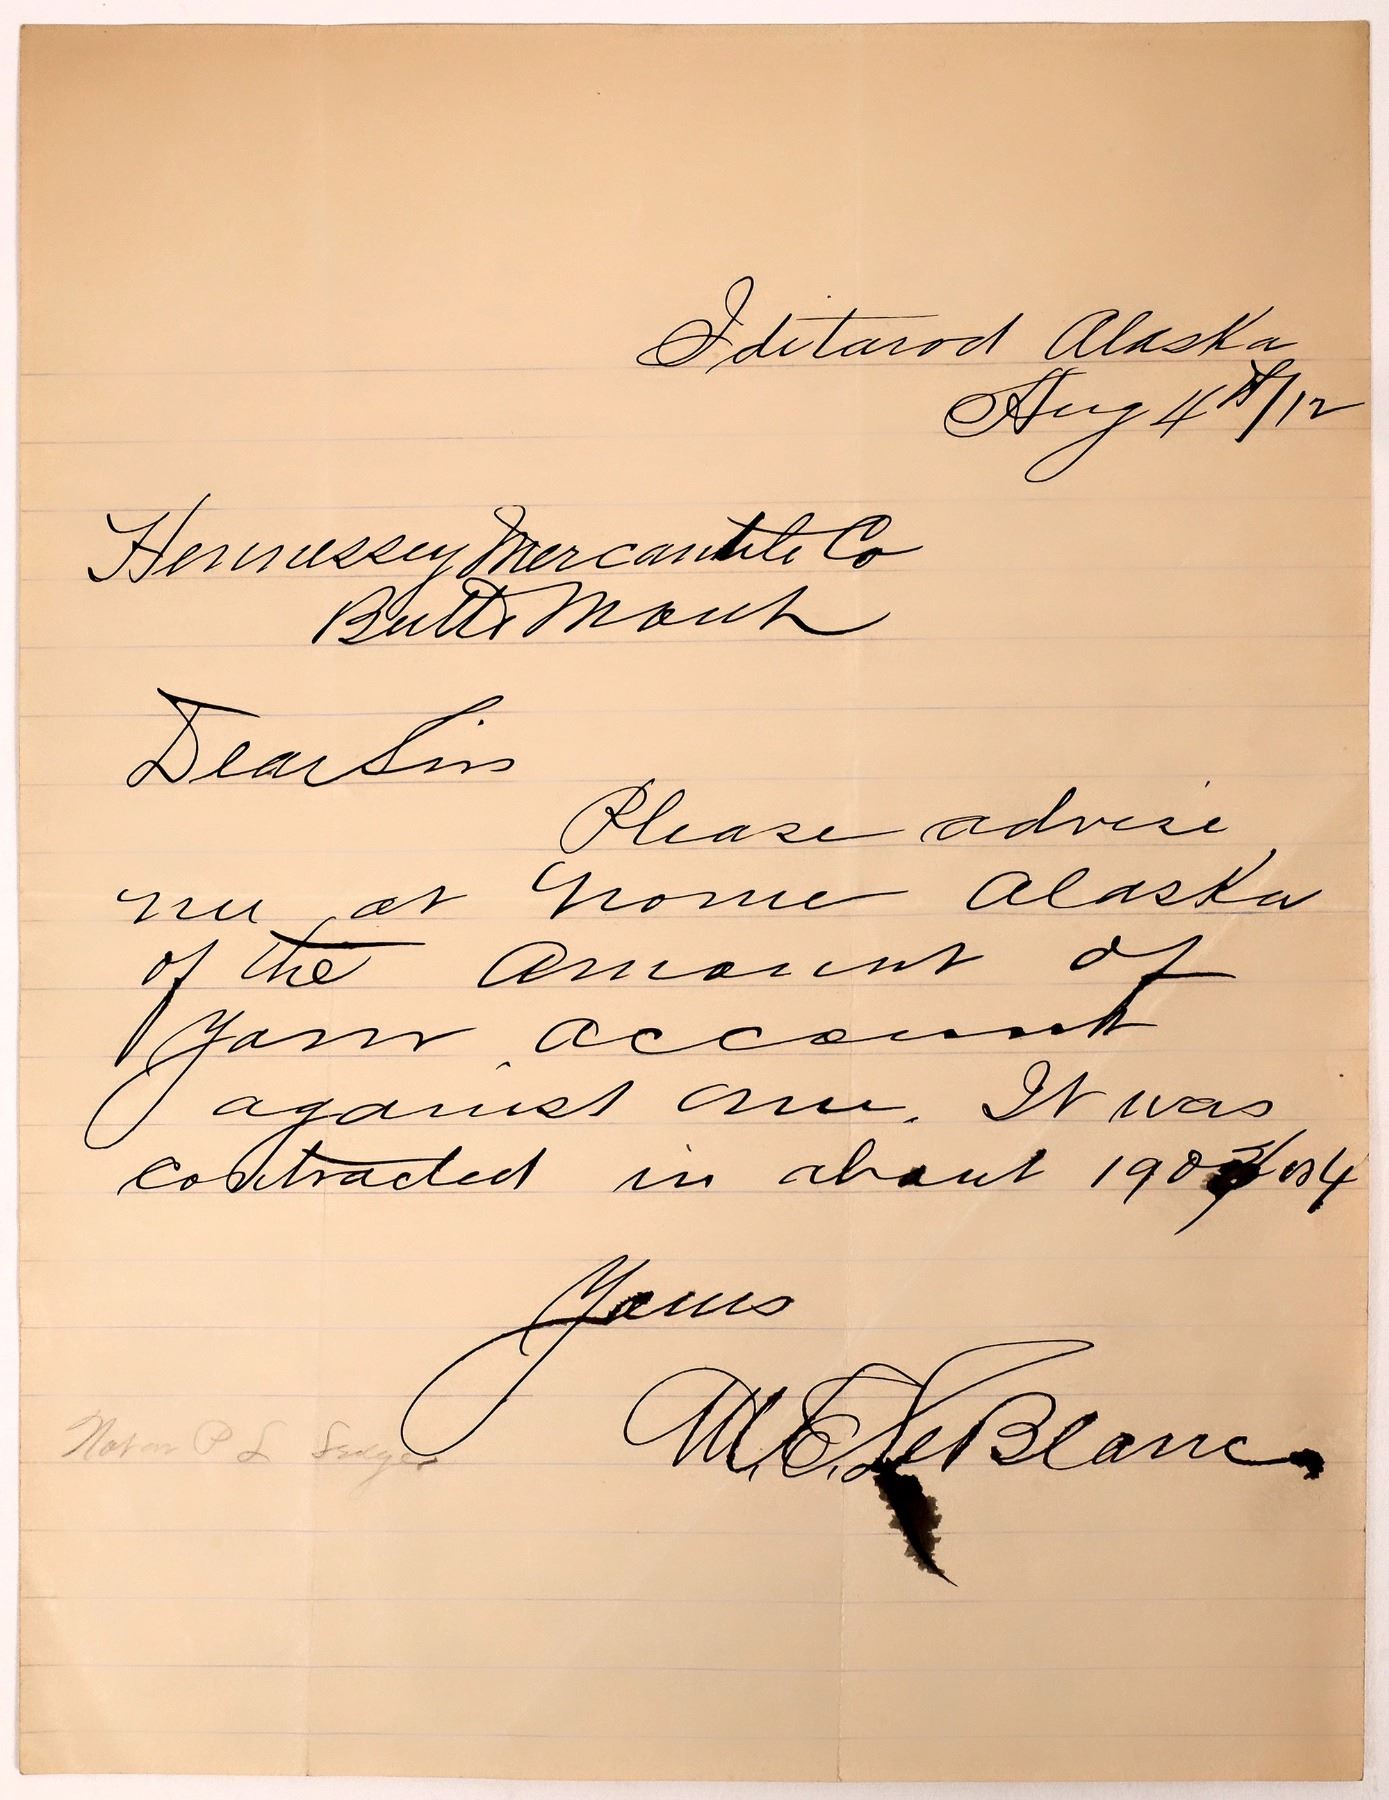 Iditarod Alaska
Aug 4th/12
Hennessey Mercantile Co
Butte Mont
Dear Sirs
Please advise
me at Nome Alaska
of the amount of
your account
against me. It was
contracted in about 1903 or 4
Yours
M.E. LeBlanc.
Not on P L Ledger